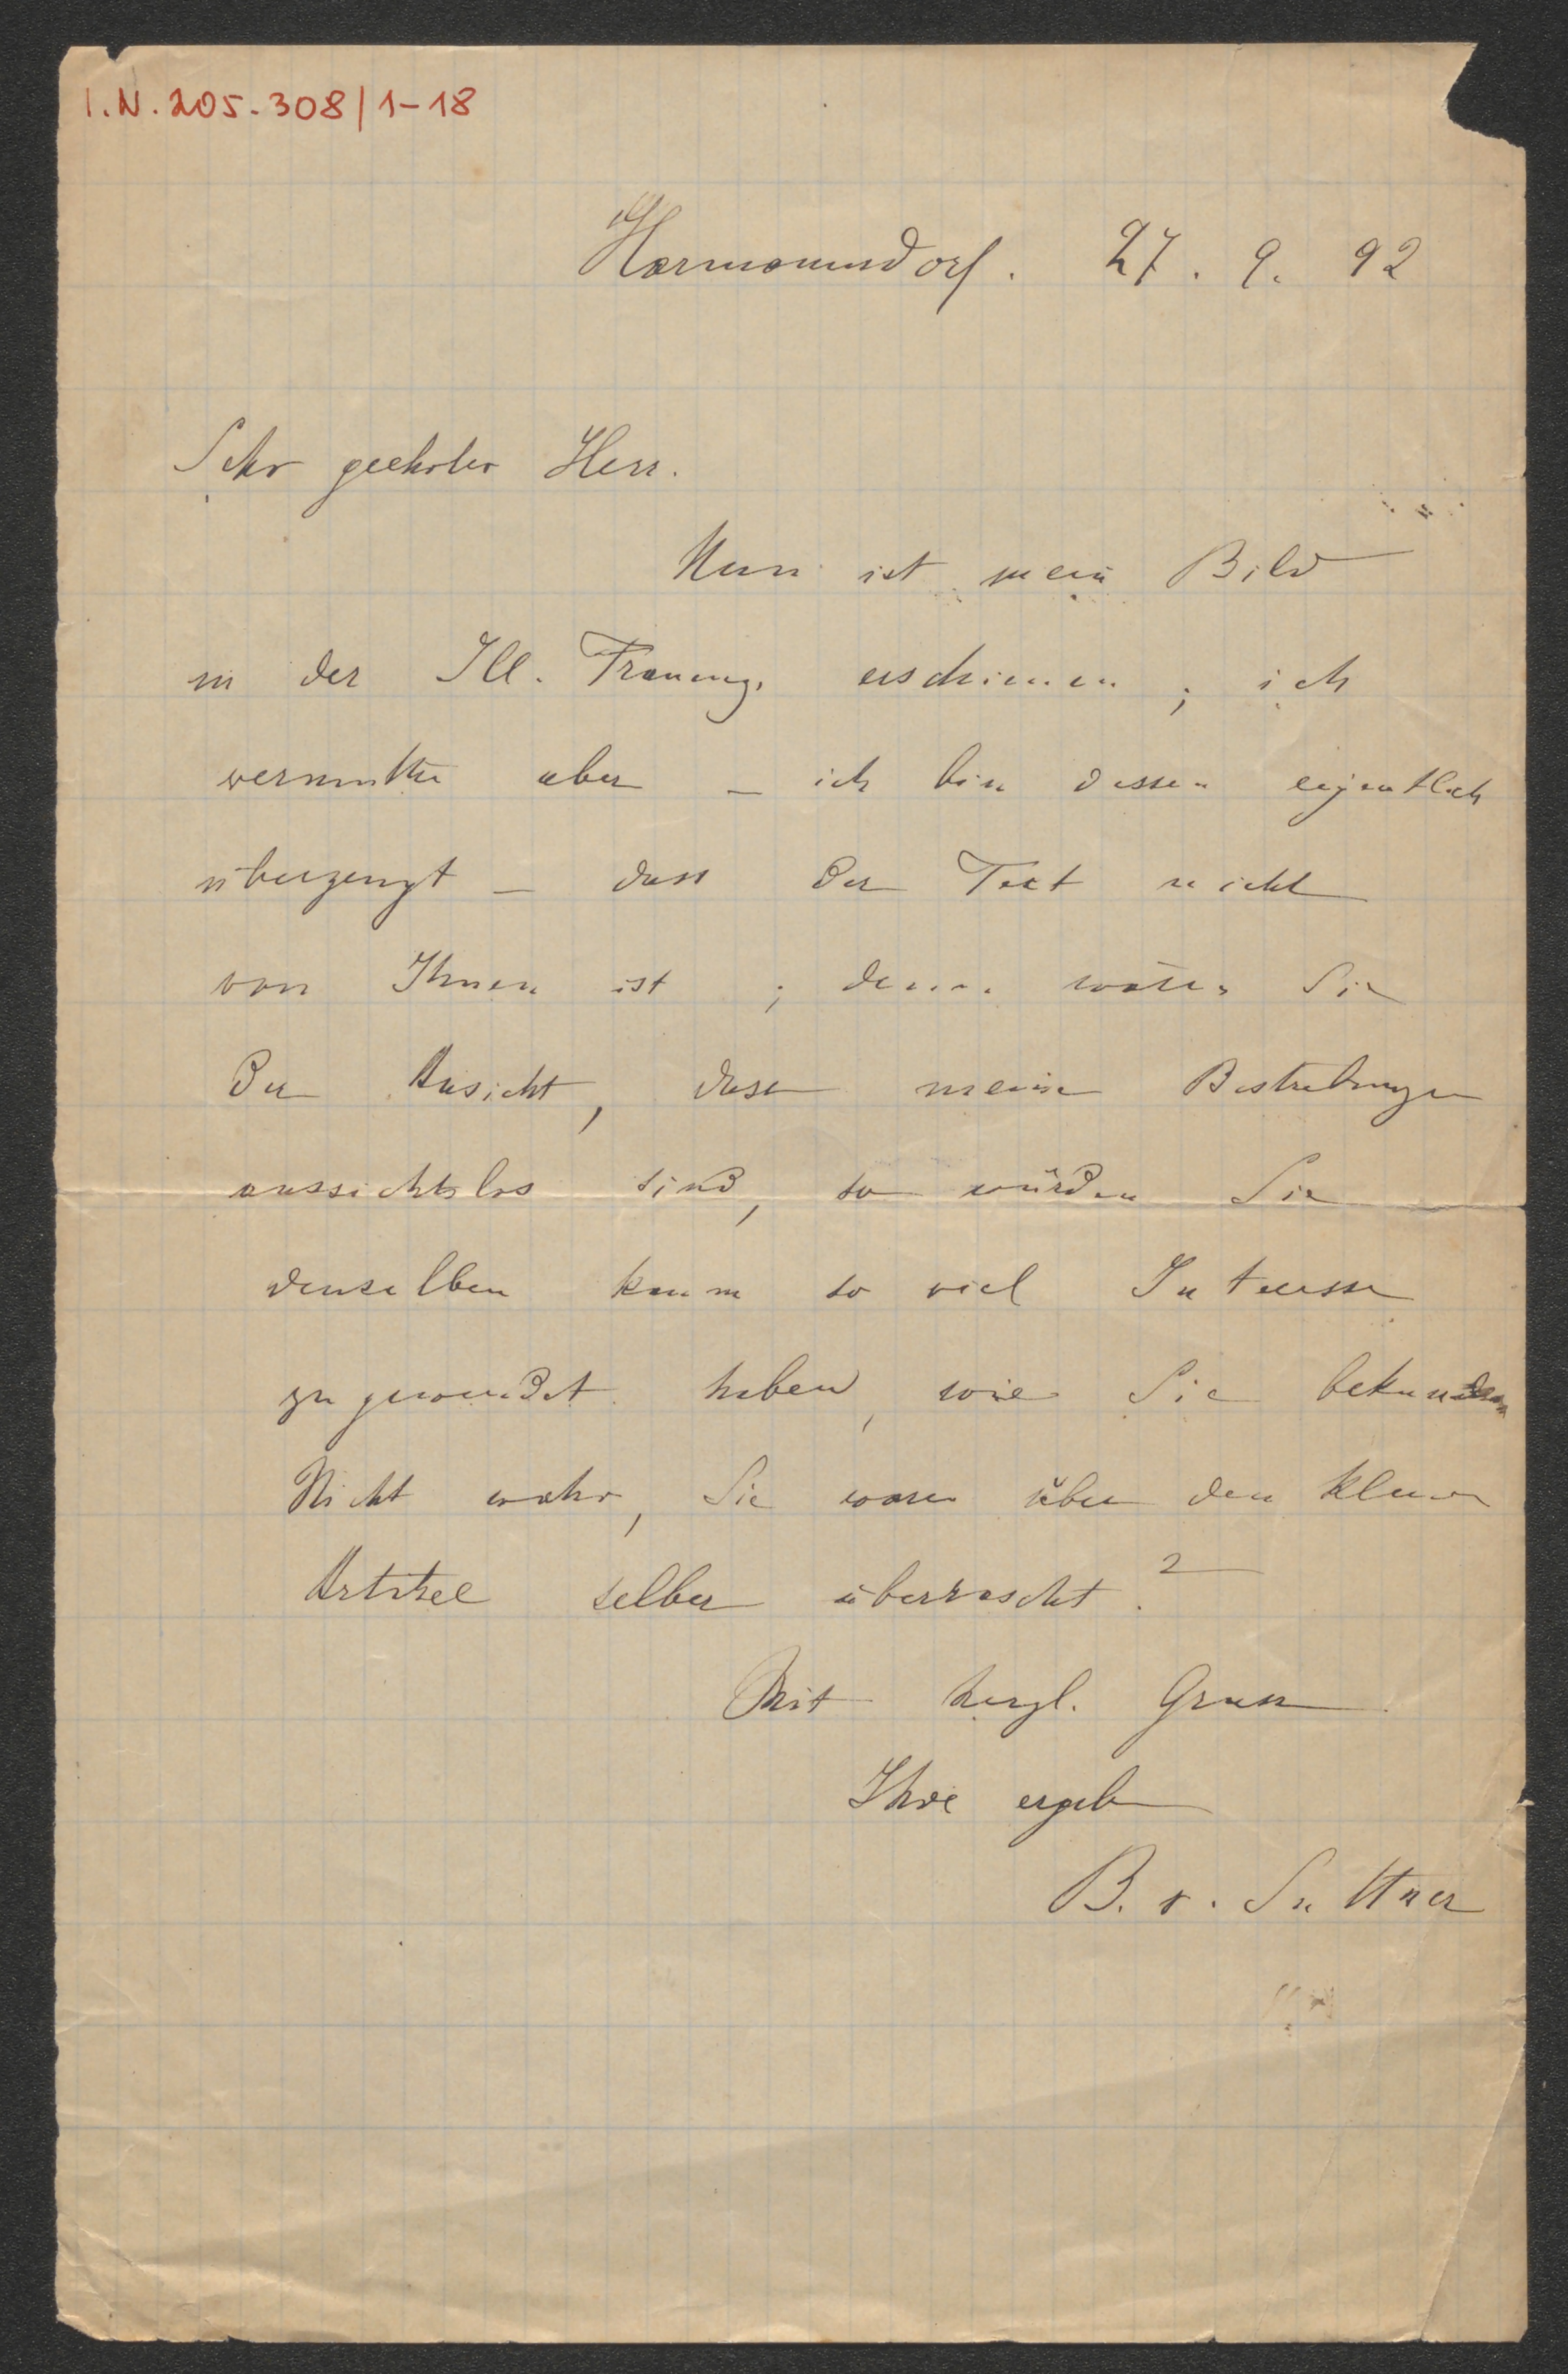 I.N. 205.308/1-18
Harmannsdorf. 27. 9. 92
Sehr geehrter Herr.
Nun ist mein Bild
in der Ill. Frauenzg. erschienen; ich
vermuthe aber – ich bin dessen eigentlich
überzeugt – dass der Text nicht
von Ihnen ist; denn wären Sie
der Ansicht, dass meine Bestrebungen
aussichtslos sind, so würden Sie
denselben kaum so viel Interesse
zugewendet haben, wie Sie bekunden
Nicht wahr, Sie waren über den kleinen
Artikel selber überrascht?
Mit herzl. Gruss
Ihre ergeb
B. v. Suttner